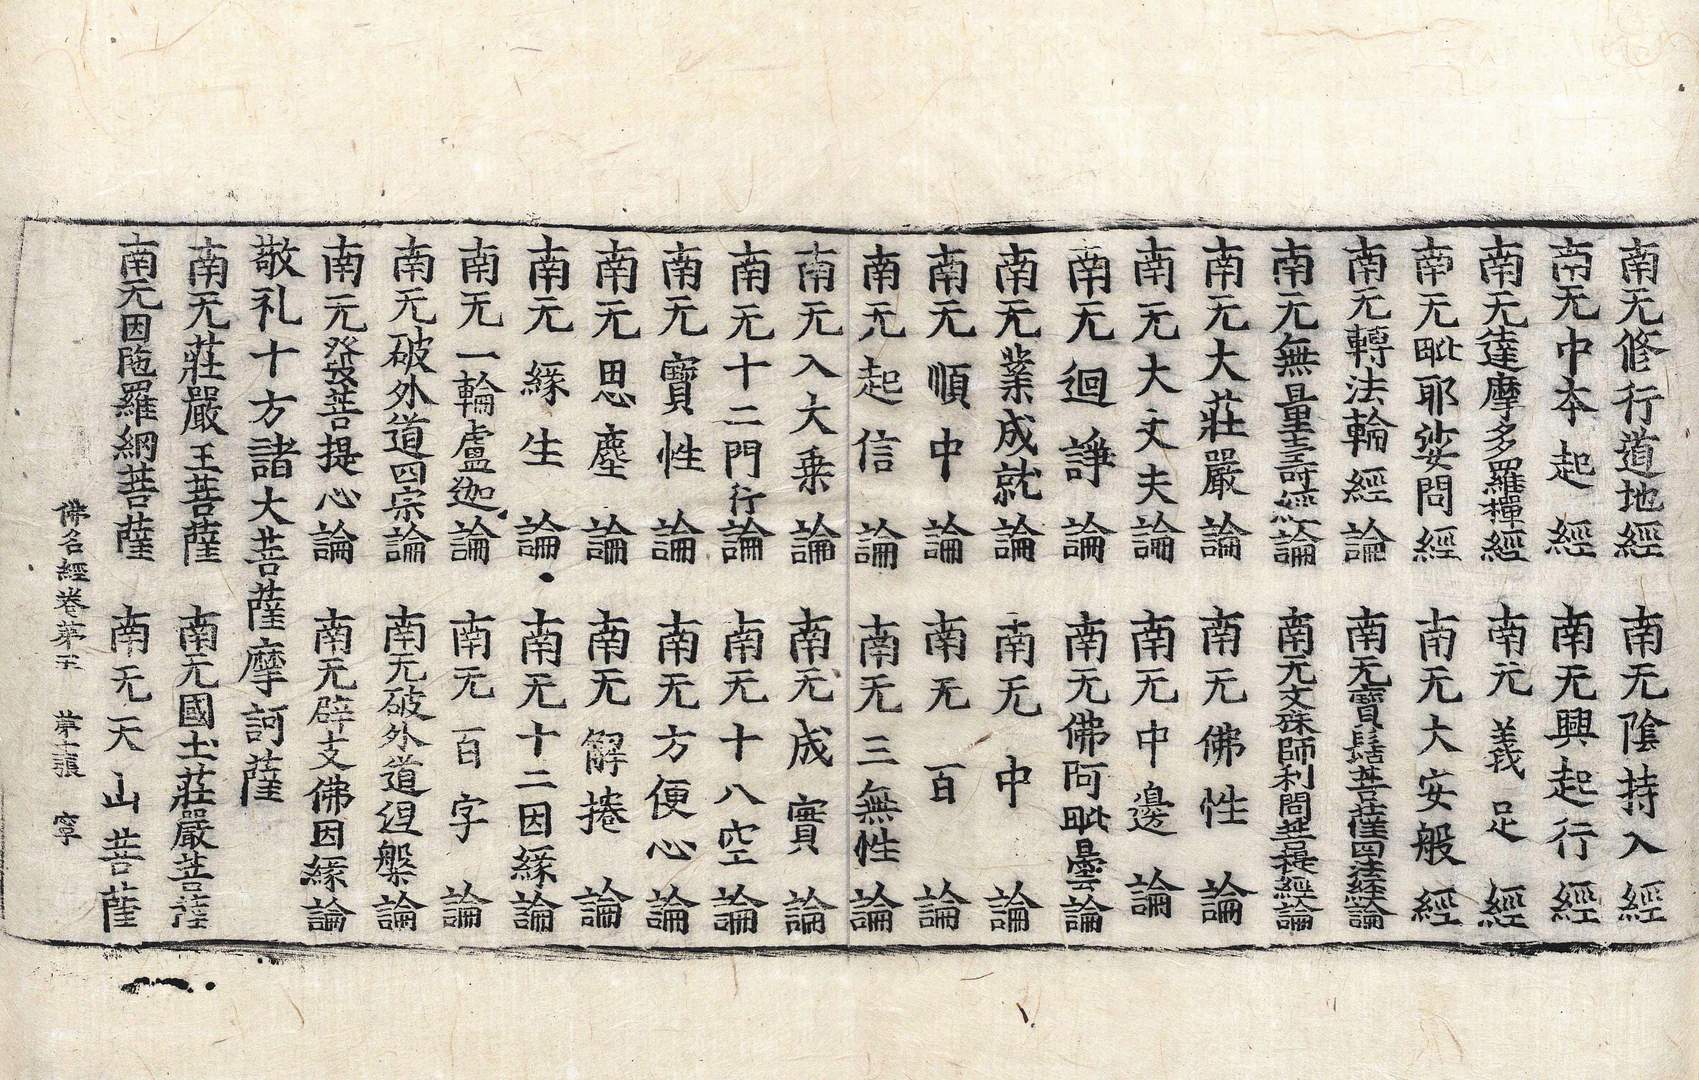 南无修行道地經 南无陰持入經
南无中夲起經 南无興起行經
南无達摩多羅禪經 南无義足經
南无毗耶娑問經 南无大安般經
南无轉法輪經論 南无寶髻菩薩四法經論
南无無量壽經論 南无文殊師利問菩提經論
南无大莊嚴論 南无佛性論
南无大丈夫論 南无中邊論
南无迴諍論 南无佛阿毗曇論
南无業成就論 南无中論
南无順中論 南无百論
南无起信論 南无三無性論
南无入大乗論 南无成實論
南无十二門行論 南无十八空論
南无寶性論 南无方便心論
南无思塵論 南无解捲論
南无緣生論 南无十二因緣論
南无一輪盧迦論 南无百字論
南无破外道四宗論 南无破外道涅槃論
南无發菩提心論 南无辟支佛因緣論
敬礼十方諸大菩薩摩訶薩
南无莊嚴王菩薩 南无國土莊嚴菩薩
南无因陁羅網菩薩 南无天山菩薩
佛名經卷第 第 張